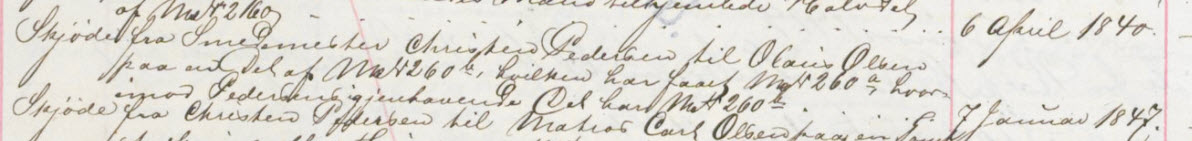 af Mat № 260
Skjøde fra Smedmester Christen Pedersen til Olaus Olsen 6 April 1840.
paa en Del af Mat № 260 b, hvilken har faaet Mat № 260 a, hvor-
imod Pedersens igjenhavende Del har Mat № 260 b.
Skjøde fra Christen Pedersen til Matros Carl Olsen paa en 7 Januar 1847.